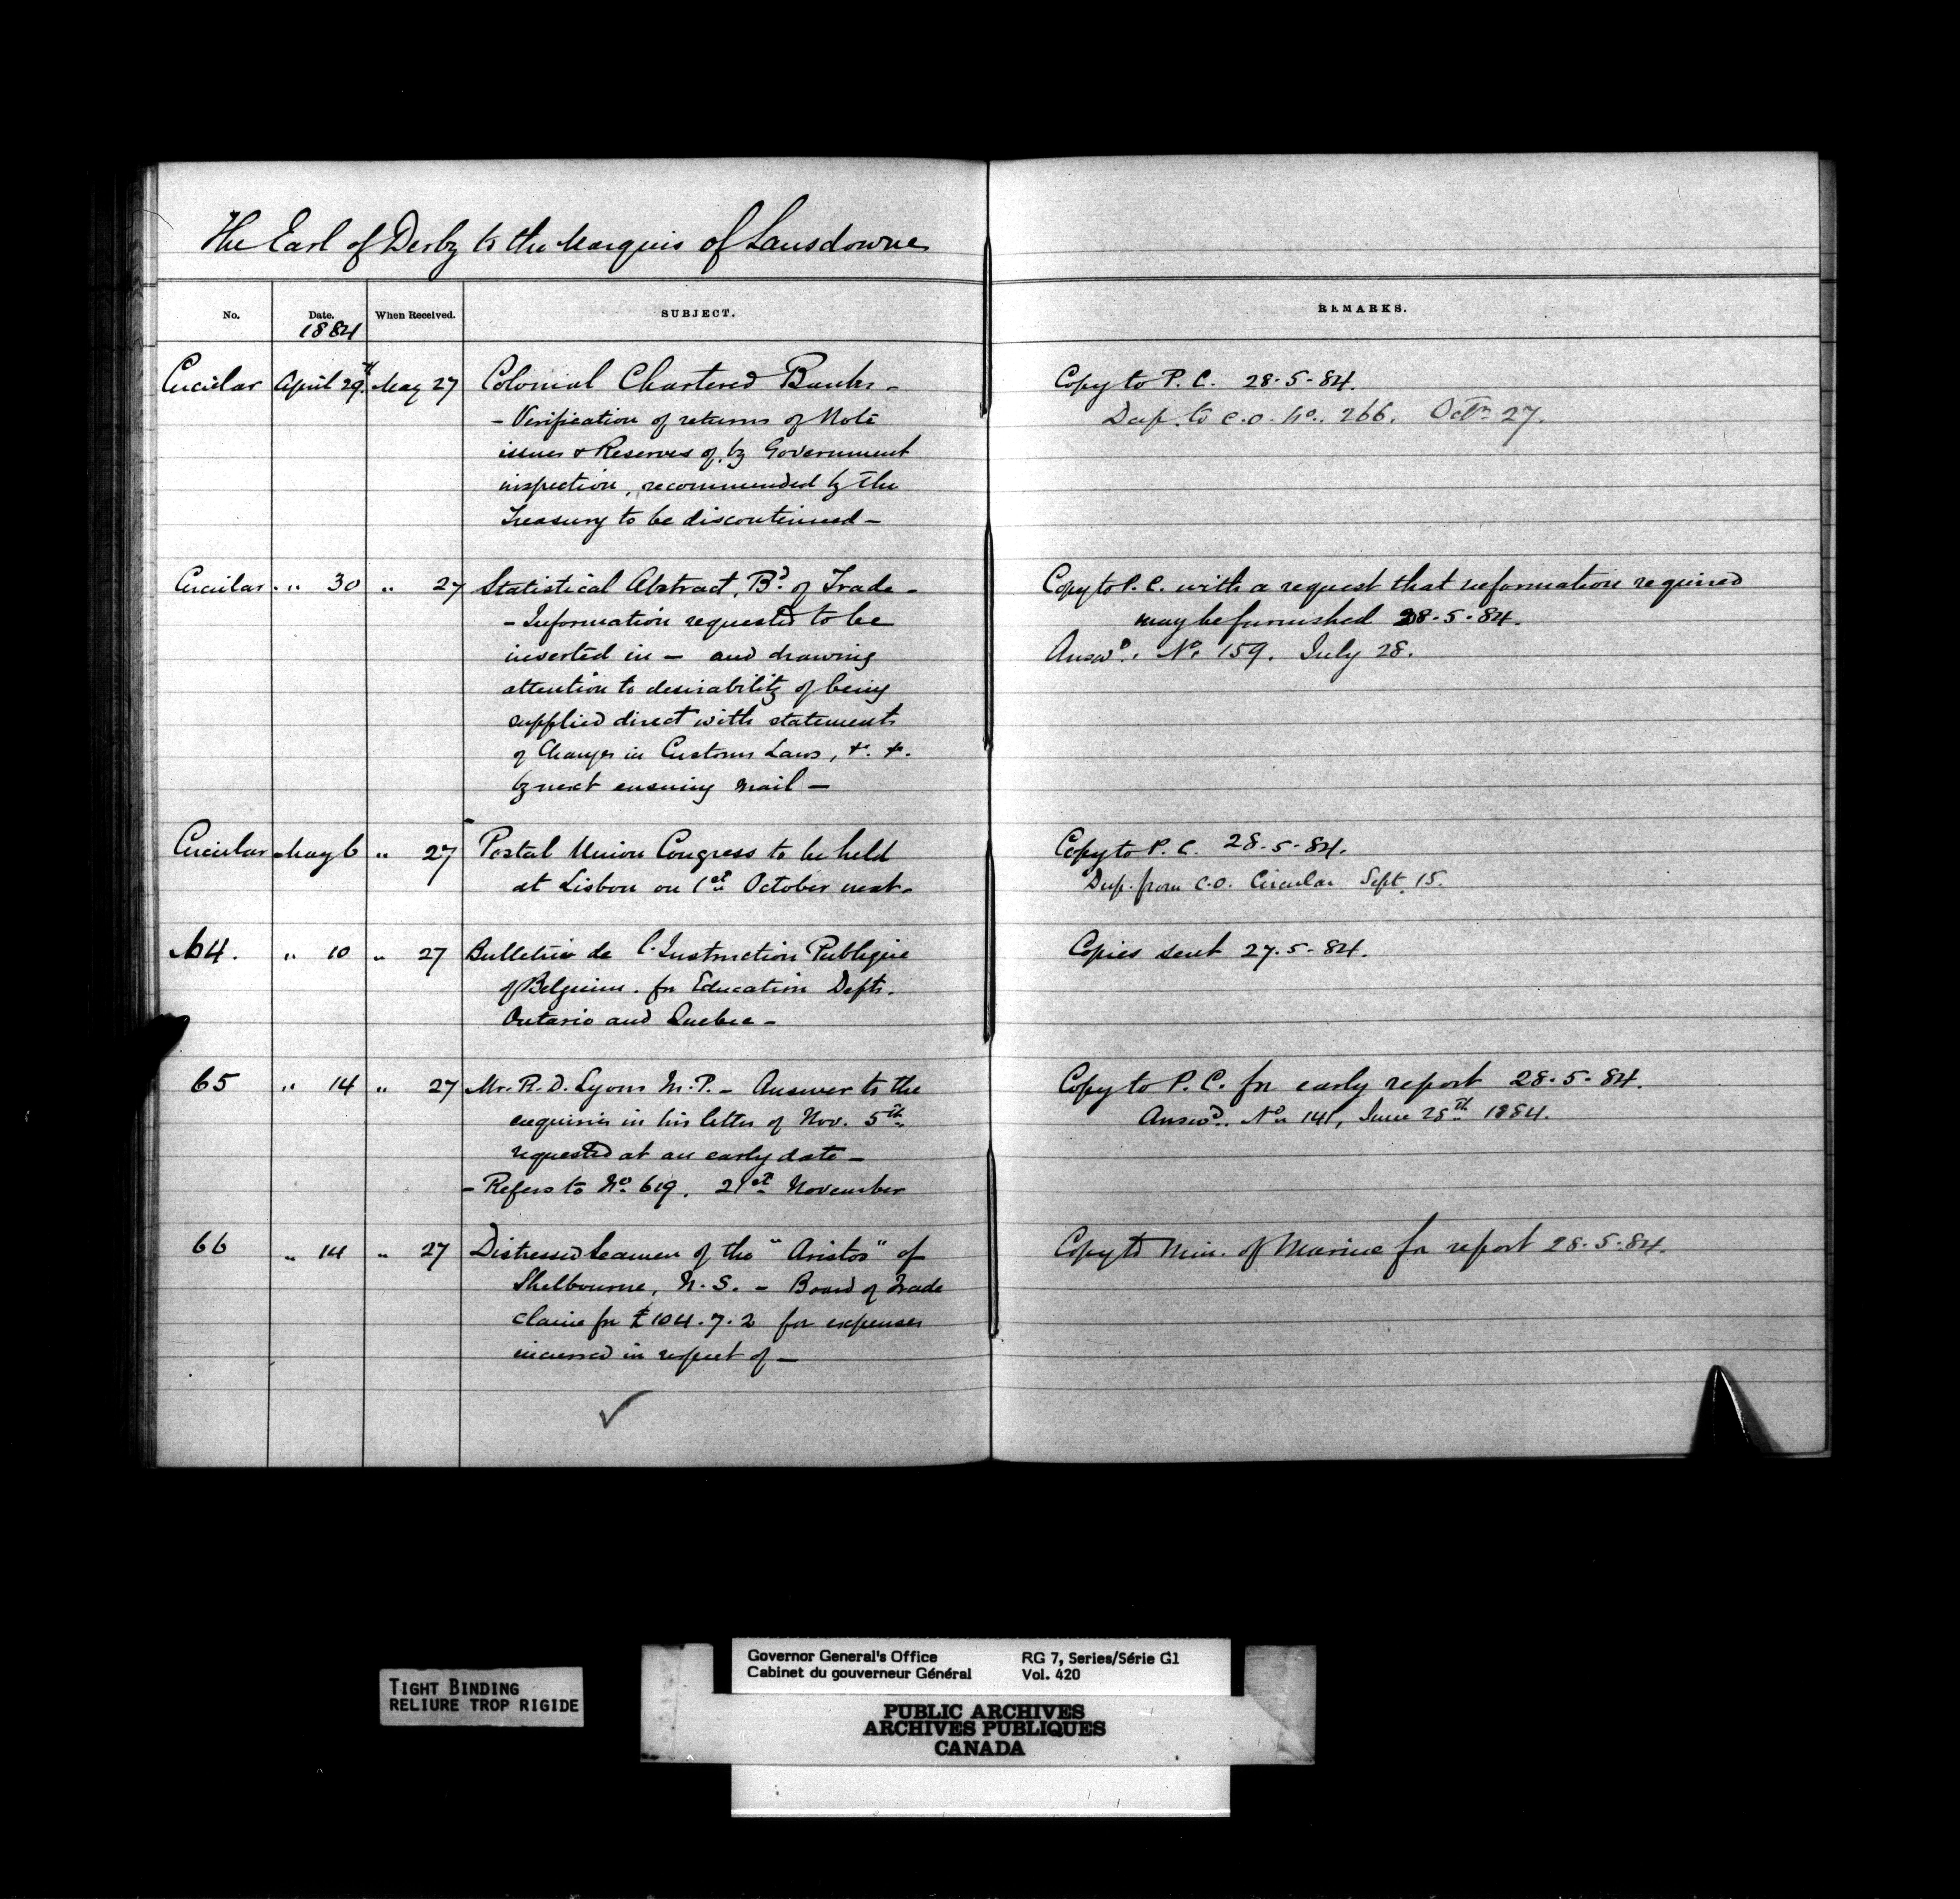 The Earl of Derby to the Marquis of Lansdowne
No. Date. When Received. SUBJECT. REMARKS.
1884
Circular April 29th. May 27 Colonial Chartered Banks - Copy to P. C. 28-5-84.
- Verification of returns of Note Desp. to C.O. No. 266. Octr. 27.
issues & Reserves of, by Government
inspection, recommended by the
Treasury to be discontinued -
Circular. " 30 " 27 Statistical Abstract, Bd. of Trade - Copy to P. C. with a request that information required
- Information requested to be may be furnished 28-5-84.
inserted in - and drawing Answd. No. 159. July 28.
attention to desirability of being
supplied direct with statements
of Changes in Customs Laws, &c. &c.
by next ensuing Mail -
Circular May 6 " 27 Postal Union Congress to be held Copy to P. C. 28-5-84.
at Lisbon on 1st October next. Desp. from C.O. Circular Sept. 15.
64. " 10 " 27 Bulletin de l'Instruction Publique Copies sent 27.5-84.
of Belgium. for Education Depts.
Ontario and Quebec -
65 " 14 " 27 Mr. R. D. Lyons M.P. - Answer to the Copy to P. C. for early report 28-5-84.
enquiries in his letter of Nov. 5th. Answd. No. 141, June 28th 1884.
requested at an early date -
- Refers to No. 619. 21st November
66 " 14 " 27 Distressed Seamen of the "Aristos" of Copy to Min. of Marine for report 28-5-84.
Shelbourne, N.S. - Board of Trade
claim for £104.7.2 for expenses
incurred in respect of -
TIGHT BINDING
RELIURE TROP RIGIDE
Governor General's Office RG 7, Series/Série G1
Cabinet du gouverneur Général Vol. 420
PUBLIC ARCHIVES
ARCHIVES PUBLIQUES
CANADA